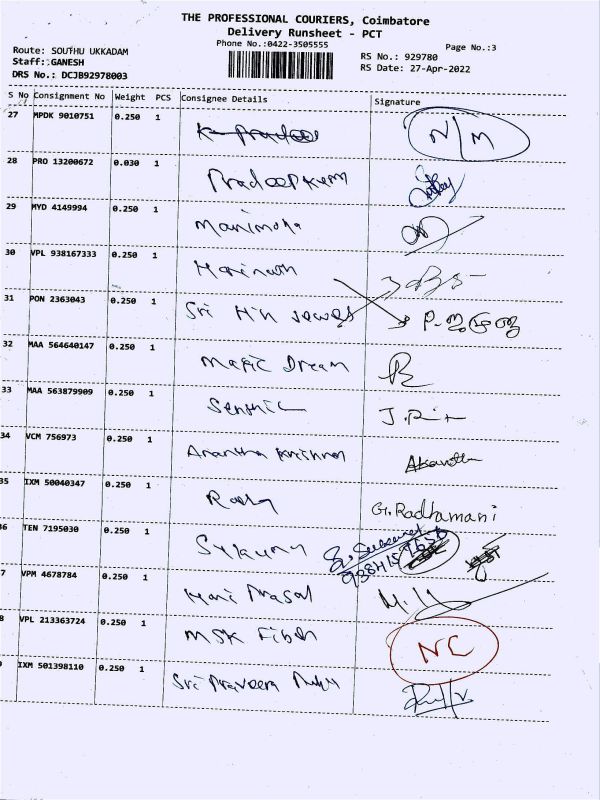 THE PROFESSIONAL COURIERS, Coimbatore
Delivery Runsheet - PCT
Phone No.:0422-3505555
Page No.:3
Route: SOUTHU UKKADAM
RS No.: 929780
Staff: GANESH
RS Date: 27-Apr-2022
DRS No.: DCJB92978003
S No Consignment No Weight PCS Consignee Details Signature
27 MPDK 9010751 0.250 1 N/M
28 PRO 13200672 0.030 1 Pradeepkum
29 MYD 4149994 0.250 1
30 VPL 938167333 0.250 1 Harinath
31 PON 2363043 0.250 1 Sri
32 MAA 564640147 0.250 1 Magic Dream
33 MAA 563879909 0.250 1 Senthil
34 VCM 756973 0.250 1 Anantha Krishnan
35 IXM 50040347 0.250 1 G. Radhamani
36 TEN 7195030 0.250 1
7 VPM 4678784 0.250 1 Hari Prasad
8 VPL 213363724 0.250 1 MSK Fiber NC
9 IXM 501398110 0.250 1 Sri Praveen